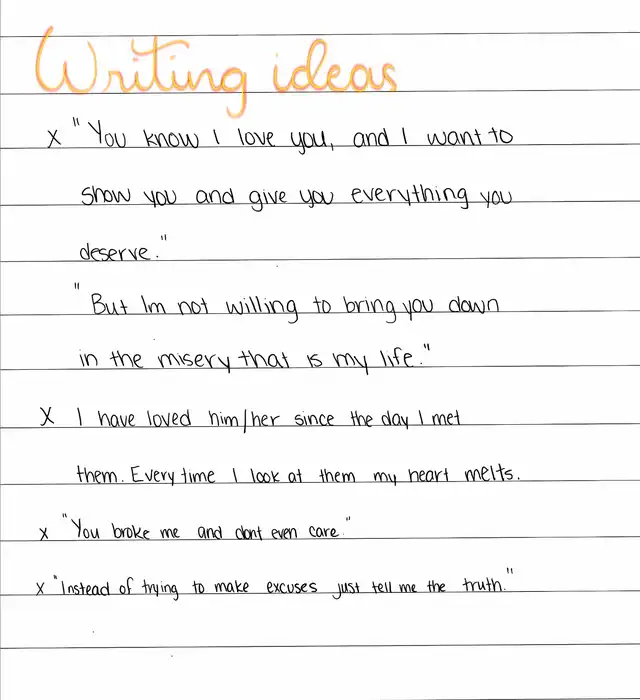 Writing ideas
x "You know I love you, and I want to
show you and give you everything you
deserve."
"But Im not willing to bring you down
in the misery that is my life."
X I have loved him/her since the day I met
them. Every time I look at them my heart melts.
x "You broke me and dont even care."
x "Instead of trying to make excuses just tell me the truth."